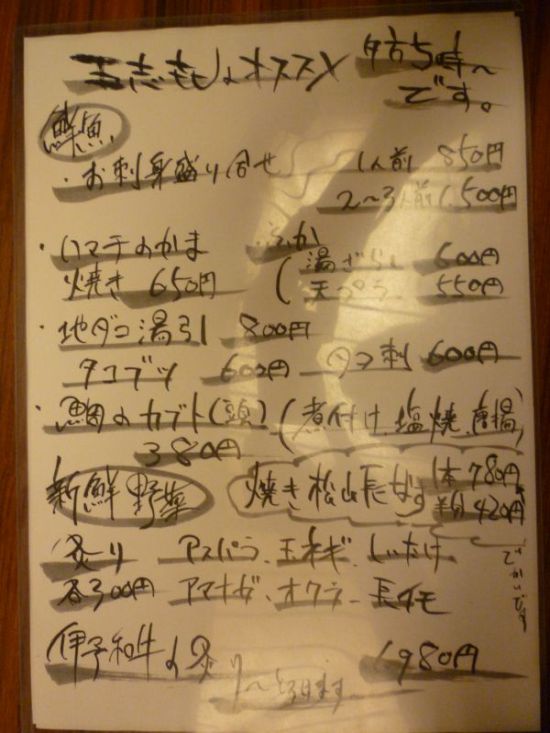 オススメ 夕方5時〜
です。
鮮魚
・お刺身盛り合せ 1人前 850円
2〜3人前 1,500円
・ハマチのかま ・ふか
焼き 650円 (湯ざらし 600円
天ぷら 550円
・地ダコ湯引 800円
タコブツ 600円 タコ刺 600円
・鯛のカブト(頭) (煮付け、塩焼、唐揚)
380円
新鮮野菜 焼き松山長なす 1本 780円
半分 420円
でかいです
炙り アスパラ、玉ネギ、しいたけ
各300円 アマナガ、オクラ、長イモ
伊予和牛の炙り 1980円
〜とろけます〜